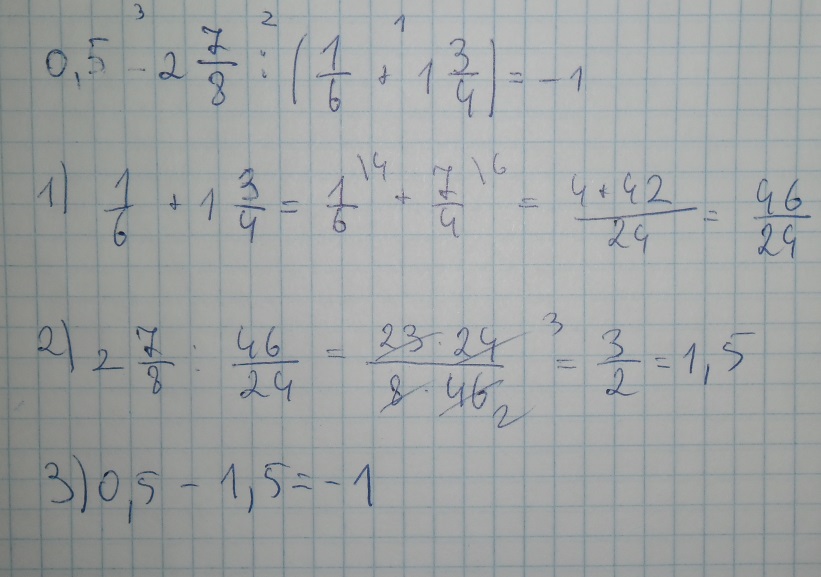 0,5 - 2 7/8 : (1/6 + 1 3/4) = -1
1) 1/6 + 1 3/4 = 1/6 \4 + 7/4 \6 = (4+42)/24 = 46/24
2) 2 7/8 : 46/24 = (23·24)/(8·46) = 3/2 = 1,5
3) 0,5 - 1,5 = -1